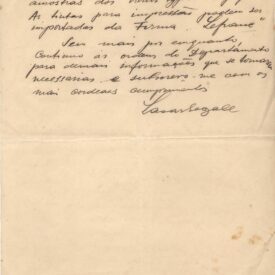 amostras dos
As tintas para impressão podem ser
importadas da Firma "Lefranc"
Sem mais por enquanto,
continuo as ordens do Departamento
para demais informações que se tornarem
necessarias e subscrevo-me com os
mais cordeaes cumprimentos
Lasar Segall